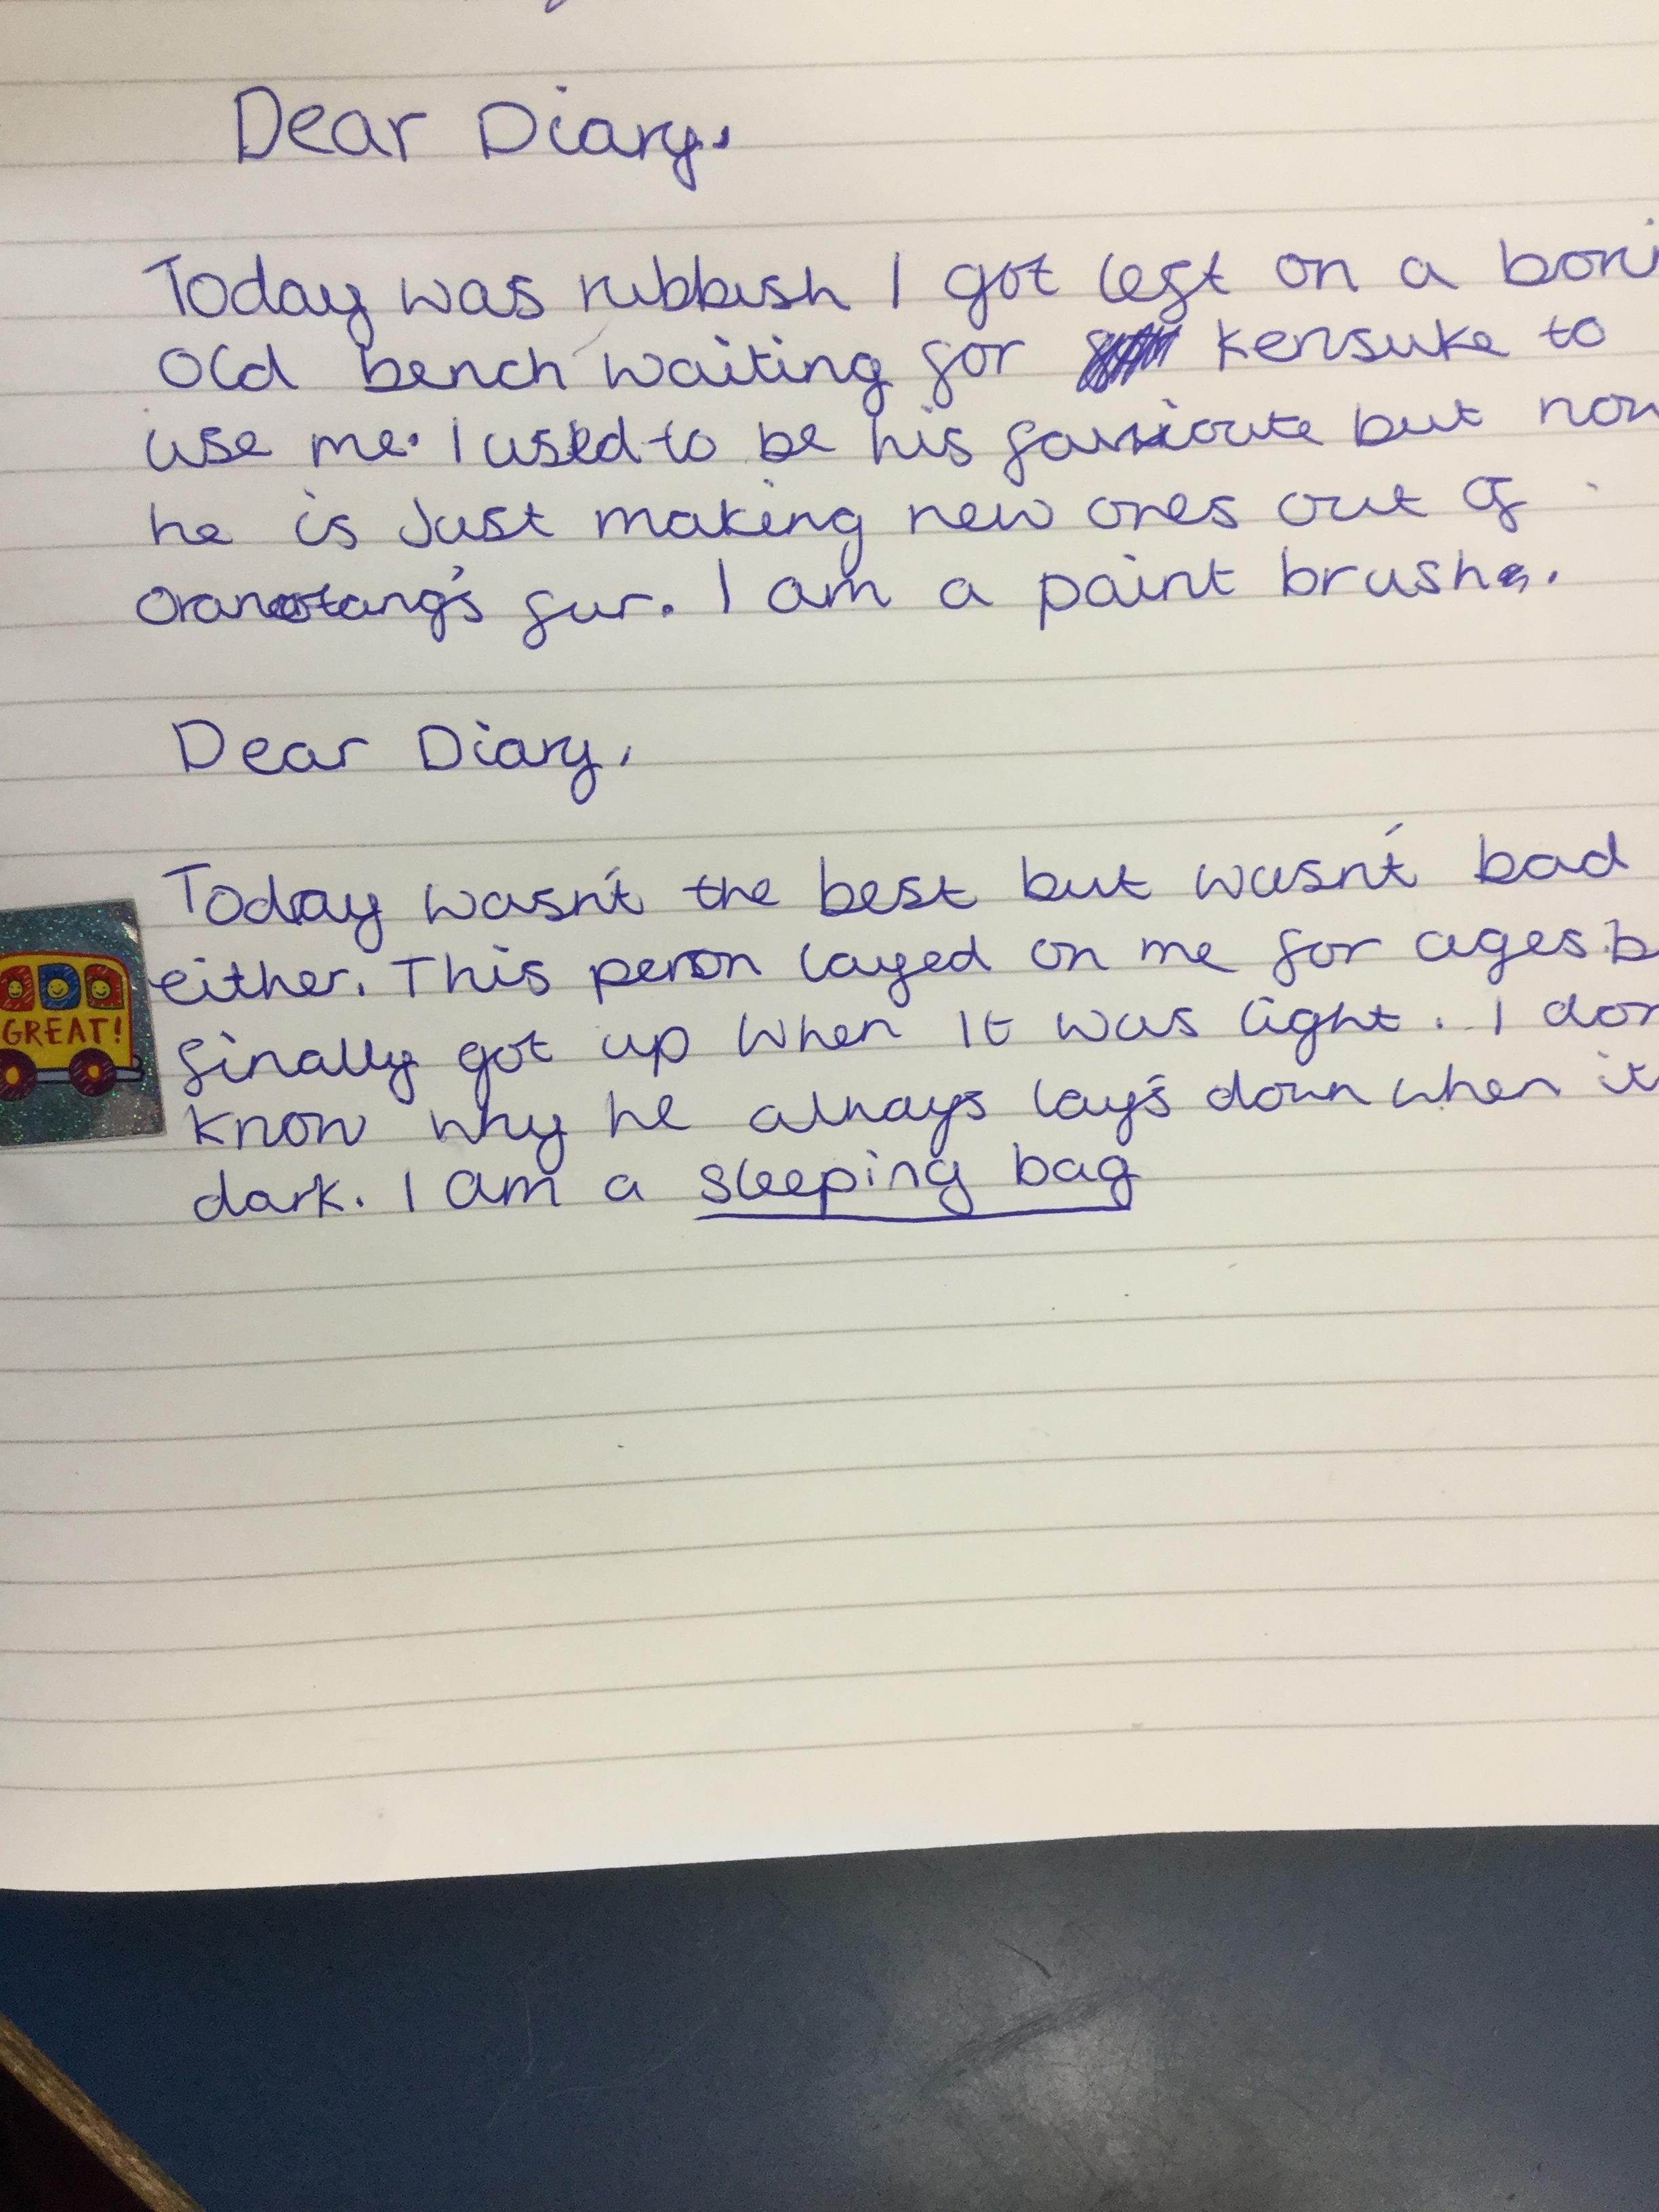 Dear Diary,
Today was rubbish I got left on a bori
old bench waiting for kensuke to
use me. I used to be his favrioute but now
he is Just making new ones out of
orangotang's fur. I am a paint brush.
Dear Diary,
Today wasn't the best but wasn't bad
either. This person layed on me for ages b
finally got up when It was light. I don
know why he always lay's down when it
dark. I am a sleeping bag
GREAT!